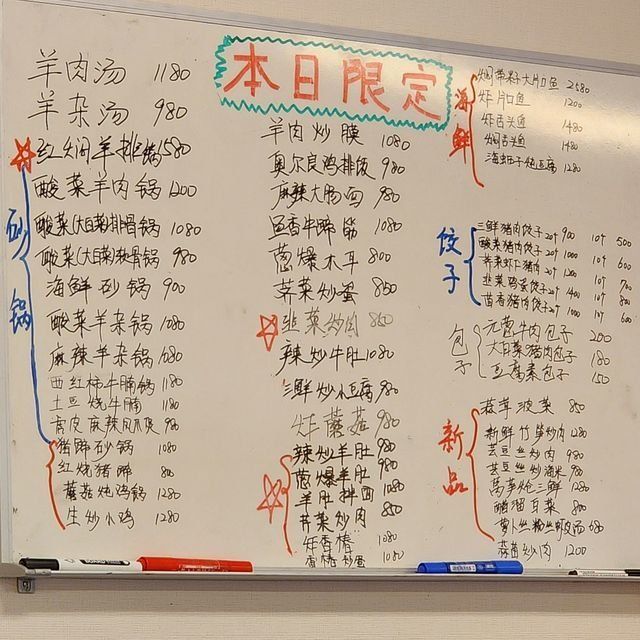 本日限定
羊肉汤 1180
羊杂汤 980
砂锅
红焖羊排锅 1580
酸菜羊肉锅 1200
酸菜(大白菜)排骨锅 1080
酸菜(大白菜)软骨锅 980
海鲜砂锅 900
酸菜羊杂锅 1080
麻辣羊杂锅 1080
西红柿牛腩锅 1180
土豆烧牛腩 1180
猪蹄砂锅 1080
红烧猪蹄 800
蘑菇炖鸡锅 1280
生炒小鸡 1280
羊肉炒膜 1080
奥尔良鸡排饭 980
麻辣大肠面 980
鱼香牛蹄筋 1080
葱爆木耳 800
荠菜炒蛋 850
韭菜炒肉 850
辣炒牛肚 1080
三鲜炒小豆腐 980
炸蘑菇 980
辣炒羊肚 980
葱爆羊肚 980
羊肚拌面 1080
芹菜炒肉 850
炸香椿 1080
香椿炒蛋 1080
海鲜
大片口鱼 2580
炸片口鱼 1200
炸舌头鱼 1480
焖舌头鱼 1480
海虾子炖豆腐 1280
饺子
三鲜猪肉饺子 20个 900 10个 500
酸菜猪肉饺子 20个 1000 10个 600
荠菜虾仁猪肉 20个 1200 10个
韭菜鸡蛋饺子 20个 1400 10个 700
茴香猪肉饺子 20个 1000 10个 600
包子
元葱牛肉包子 200
大白菜猪肉包子 180
豆腐素包子 150
新品
菠菜 850
新鲜竹笋炒肉 1280
芸豆丝炒肉 980
芸豆丝炒海米 980
莴笋炝三鲜 1280
醋溜白菜 800
萝卜丝粉丝虾皮汤 680
蒜苗炒肉 1200